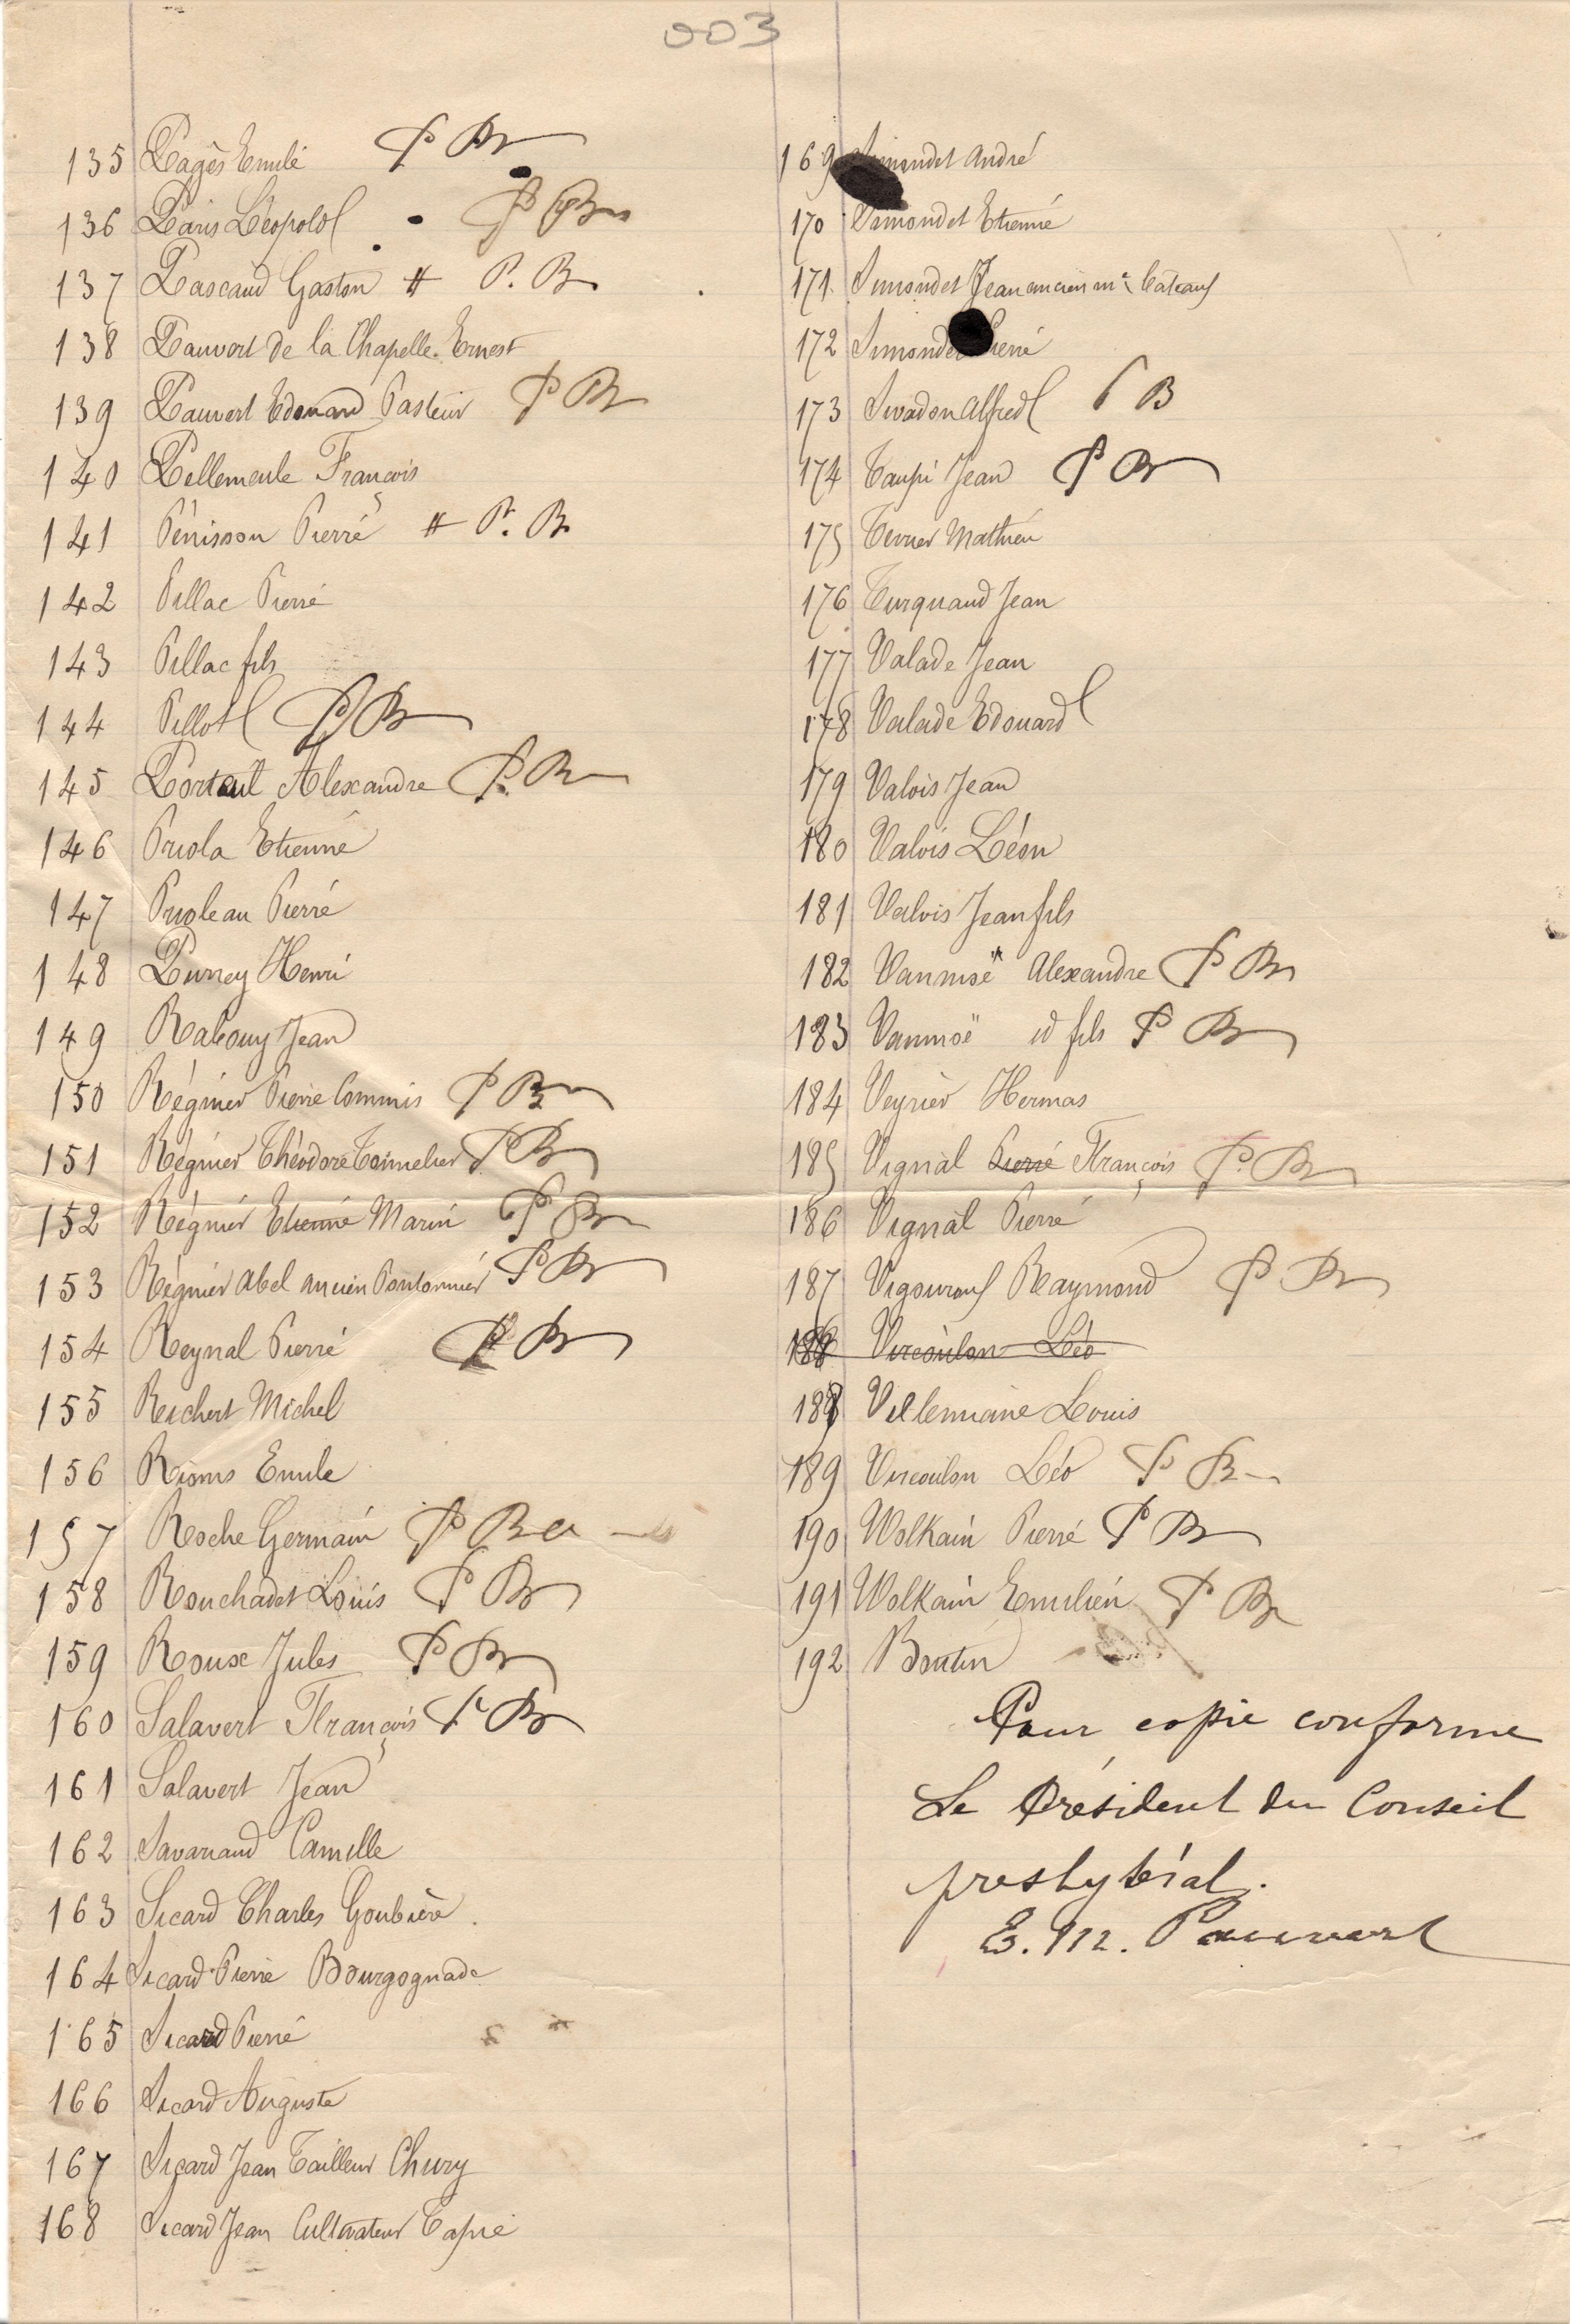 003
135 Pagès Emile P Br
136 Paris Léopold P Br
137 Pascaud Gaston # P. B.
138 Pauvert de la Chapelle Ernest
139 Pauvert Edouard Pasteur P Br
140 Pellemeule François
141 Pénisson Pierre # Pr. B.
142 Pillac Pierre
143 Pillac fils
144 Pillot P Br
145 Portail Alexandre P. Br
146 Priola Etienne
147 Prioleau Pierre
148 Purrey Henri
149 Rabouy Jean
150 Régnier Pierre Commis P Br
151 Régnier Théodore Tonnelier P Br
152 Régnier Etienne Marin P Br
153 Régnier Abel ancien Pontonnier P Br
154 Reynal Pierre P Br
155 Richert Michel
156 Rioms Emile
157 Roche Germain P Br
158 Rouchadet Louis P Br
159 Roux Jules P Br
160 Salavert François P Br
161 Salavert Jean
162 Savariaud Camille
163 Sicard Charles Goubière
164 Sicard Pierre Bourgognade
165 Sicard Pierre
166 Sicard Auguste
167 Sicard Jean Tailleur Chury
168 Sicard Jean Cultivateur Capie
169 Simondet André
170 Simondet Etienne
171 Simondet Jean ancien md Cateaux
172 Simondet Pierre
173 Sivadon Alfred P B
174 Taupi Jean P Br
175 Terrier Mathieu
176 Turquaud Jean
177 Valade Jean
178 Valade Edouard
179 Valois Jean
180 Valois Léon
181 Valois Jean fils
182 Vanmoë Alexandre P Br
183 Vanmoë id fils P Br
184 Veyrier Hermas
185 Vignal Pierre François P. Br
186 Vignal Pierre
187 Vigouroux Raymond P Br
188 Vircoulon Léo
188 Villemiane Louis
189 Vircoulon Léo P Br
190 Wolkain Pierre P Br
191 Wolkain Emilien P Br
192 Boutin
Pour copie conforme
Le Président du Conseil
presbytéral.
E. M. Pauvert